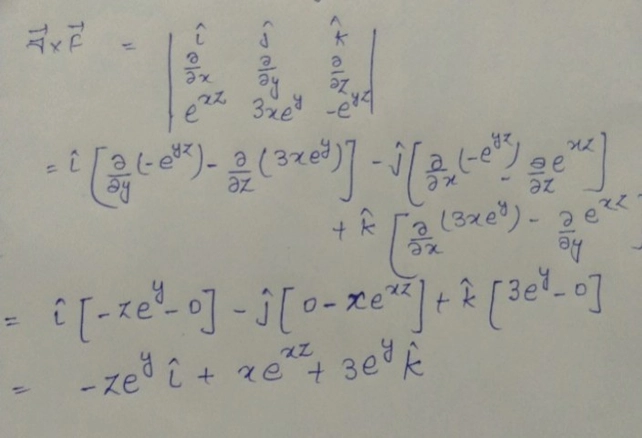 ∇⃗×F⃗ = | î ĵ k̂
∂/∂x ∂/∂y ∂/∂z
e^{xz} 3xe^y -e^{yz} |
= î [∂/∂y (-e^{yz}) - ∂/∂z (3xe^y)] - ĵ [∂/∂x (-e^{yz}) - ∂/∂z e^{xz}]
+ k̂ [∂/∂x (3xe^y) - ∂/∂y e^{xz}]
= î [-ze^y - 0] - ĵ [0 - xe^{xz}] + k̂ [3e^y - 0]
= -ze^y î + xe^{xz} + 3e^y k̂